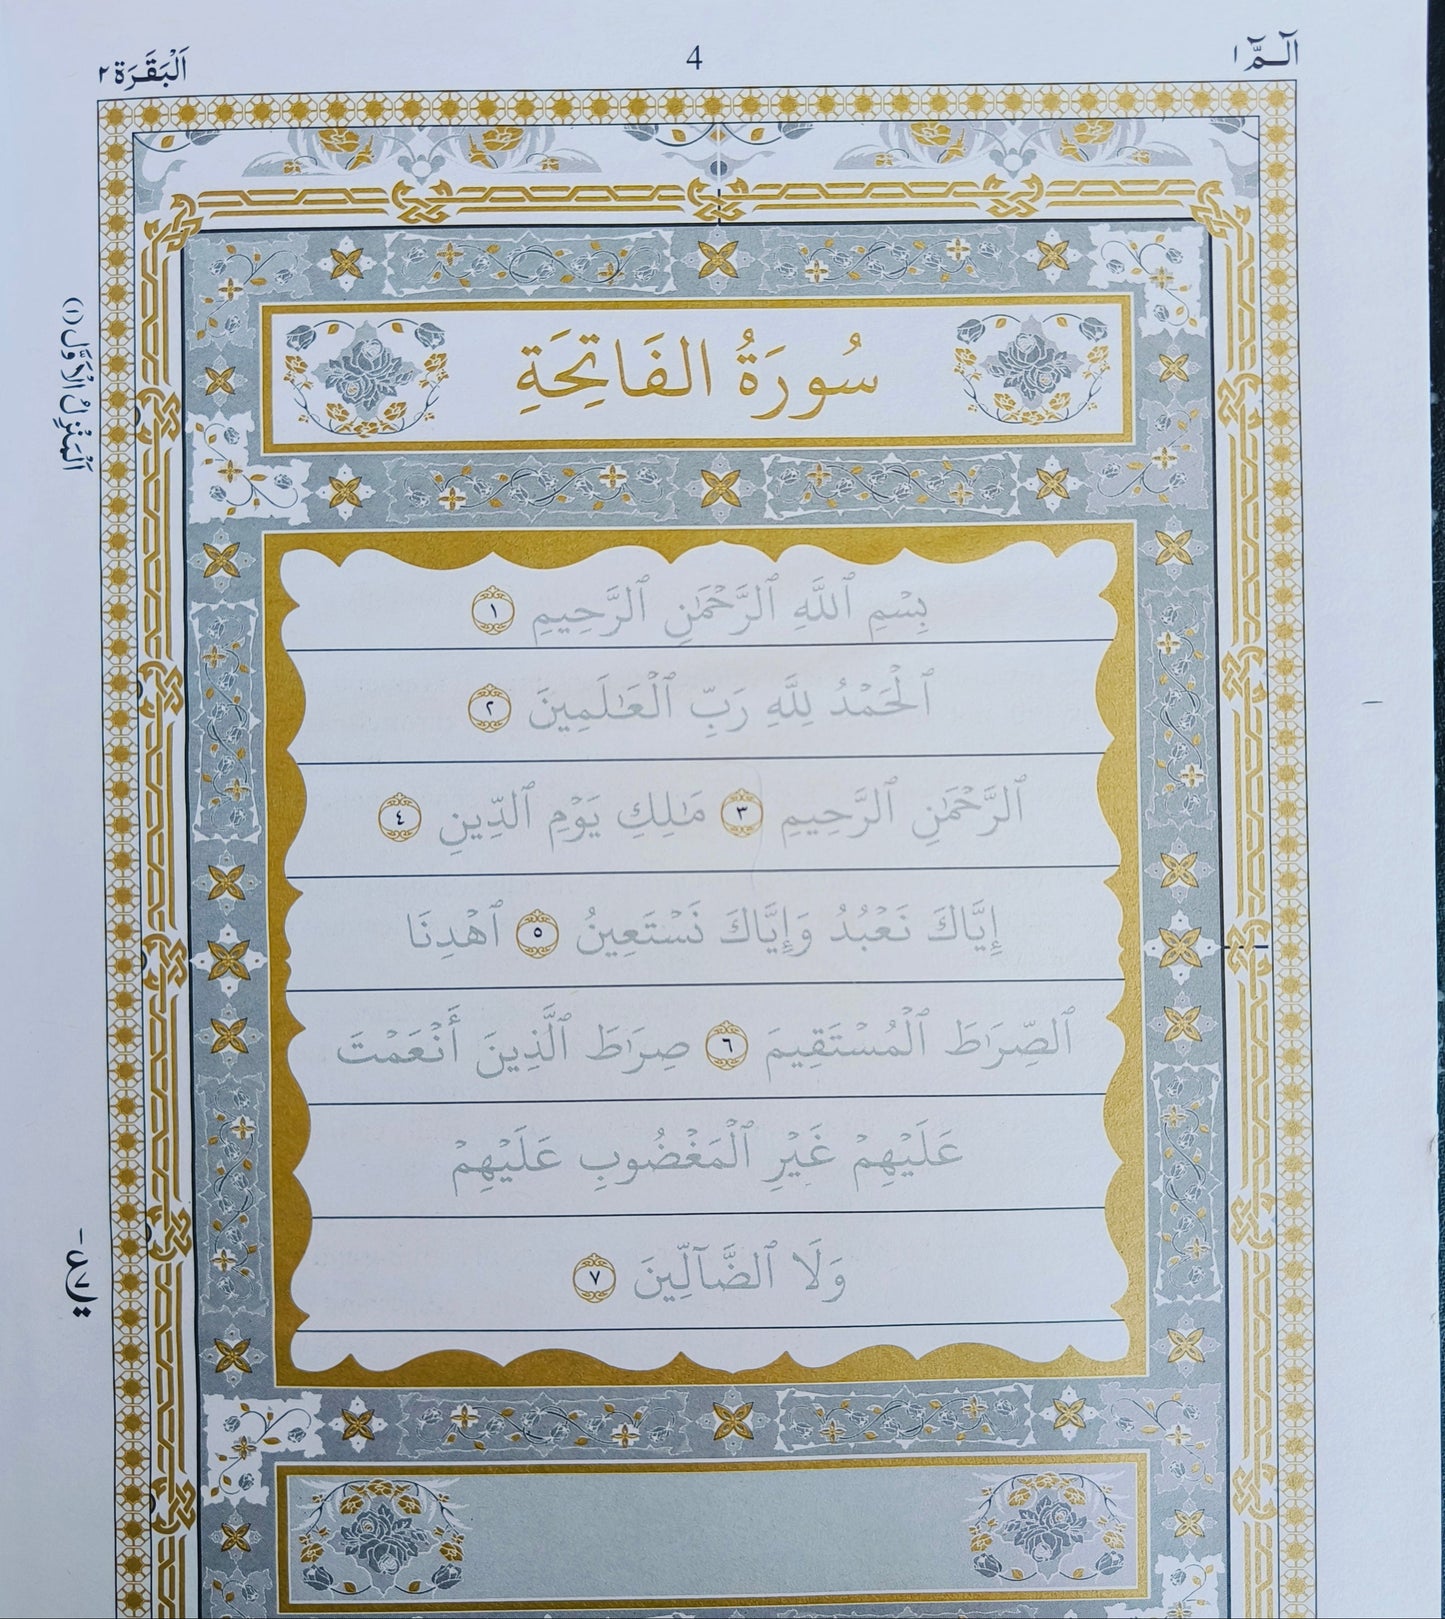 الٓـمّٓ ١
4
اَلْبَقَرَة ٢
سُورَةُ الفَاتِحَةِ
بِسْمِ ٱللَّهِ ٱلرَّحْمَٰنِ ٱلرَّحِيمِ ١
ٱلْحَمْدُ لِلَّهِ رَبِّ ٱلْعَٰلَمِينَ ٢
ٱلرَّحْمَٰنِ ٱلرَّحِيمِ ٣ مَٰلِكِ يَوْمِ ٱلدِّينِ ٤
إِيَّاكَ نَعْبُدُ وَإِيَّاكَ نَسْتَعِينُ ٥ ٱهْدِنَا
ٱلصِّرَٰطَ ٱلْمُسْتَقِيمَ ٦ صِرَٰطَ ٱلَّذِينَ أَنْعَمْتَ
عَلَيْهِمْ غَيْرِ ٱلْمَغْضُوبِ عَلَيْهِمْ
وَلَا ٱلضَّآلِّينَ ٧
اَلْمَنْزِلُ الْاَوَّل (١)